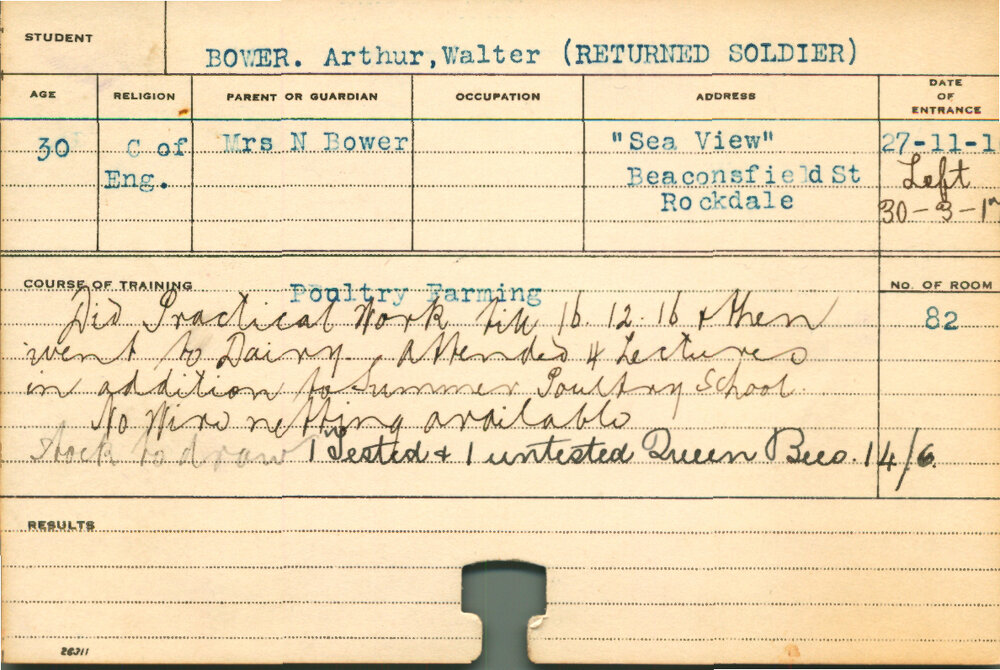 STUDENT
BOWER. Arthur, Walter (RETURNED SOLDIER)
AGE RELIGION PARENT OR GUARDIAN OCCUPATION ADDRESS DATE OF ENTRANCE
30 C of Mrs N Bower "Sea View" 27-11-1
Eng. Beaconsfield St Left
Rockdale 30-3-1
COURSE OF TRAINING Poultry Farming No. OF ROOM
Did Practical Work till 16.12.16 & then 82
went to Dairy. Attended 4 Lectures
in addition to Summer Poultry School.
No Wire netting available
Stock to draw 1 Tested & 1 untested Queen Bees. 14/6
RESULTS
26311